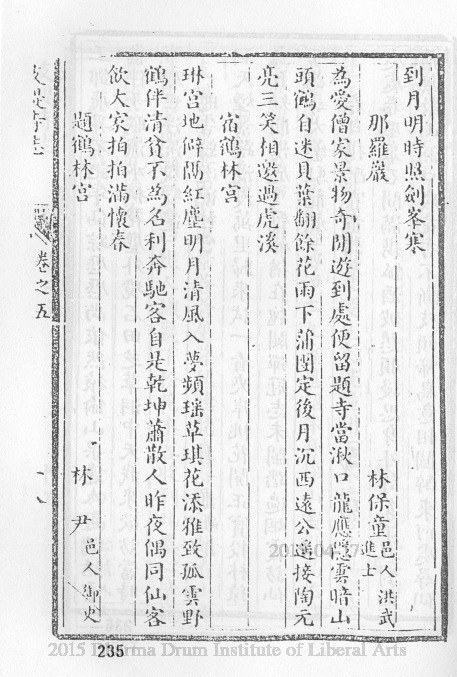 到月明時照劍峯寒
那羅巖 林保童 邑人洪武進士
為愛僧家景物奇閒遊到處便留題寺當湫口龍應隱雲暗山
頭鶴自迷貝葉翻餘花雨下蒲團定後月沉西遠公還接陶元
亮三笑相邀過虎溪
宿鶴林宮
琳宮地僻隔紅塵明月清風入夢頻瑤草琪花添雅致孤雲野
鶴伴清貧不為名利奔馳客自是乾坤蕭散人昨夜偶同仙客
飲大家拍拍滿懷春
題鶴林宮 林尹 邑人御史
卷之五
十八
235
2015 Dharma Drum Institute of Liberal Arts